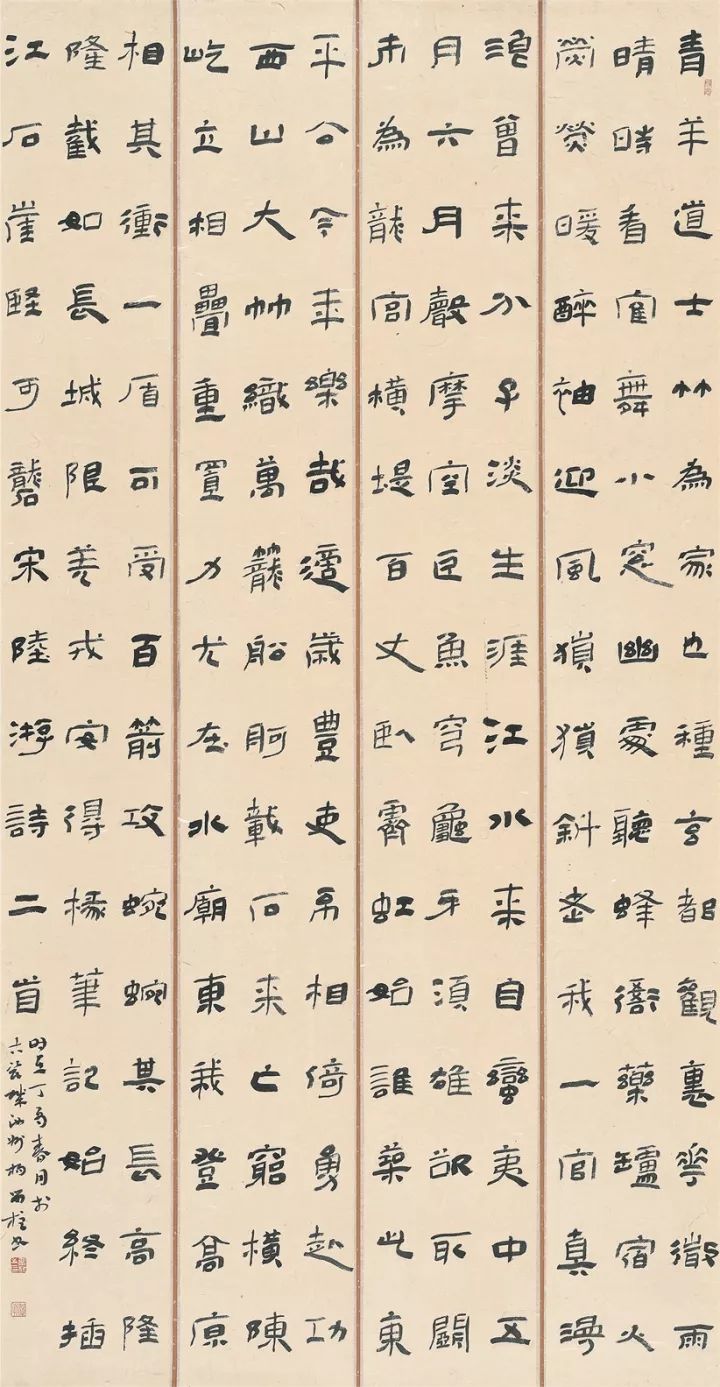 青羊道士竹為家也種玄都觀裏花微雨
晴時看寉舞小窓幽處聽蜂衙藥爐宿火
熒熒暖醉袖迎風獵獵斜老我一官真漫
浪曾来分子淡生涯江水来自蠻夷中五
月六月聲摩空巨魚穹龜牙須雄欲取闤
市為龍宮橫堤百丈臥霽虹始誰築此東
平公今年樂哉適歲豐吏不相倚勇赴功
西山大竹織萬籠船舸載石来亡窮橫陳
屹立相疊重置力尤在水廟東我登高原
相其衝一盾可受百箭攻蜿蜿其長高隆
隆截如長城限羌戎安得椽筆記始終插
江石崖堅可礱宋陸游詩二首
時在丁酉春月於